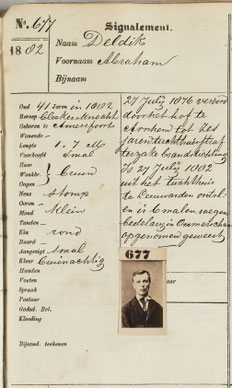 Nº. 677
Signalement.
1882
Naam Deldik
Voornaam Abraham
Bijnaam
Oud 41 jaren in 1882
Beroep
Geboren te Amersfoort
Wonende -
Lengte 1.7 M
Voorhoofd Smal
Haar -
Wenkbr. Bruin
Oogen -
Neus Stomp
Ooren -
Mond Klein
Tanden -
Kin rond
Baard -
Aangezigt Smal
Kleur
Handen
Voeten
Spraak
Postuur
Godsd. Bel.
Kleeding
Bijzond. teekenen
27 July 1876
door het hof te
Arnhem tot zes
jaren tuchthuisstraf
terzake brandstichting
Is 27 July 1882
uit het Tuchthuis
te Leeuwarden ontsl.
en is 6 malen wegen
bedelarij in Ommerschans
opgenomen geweest
677